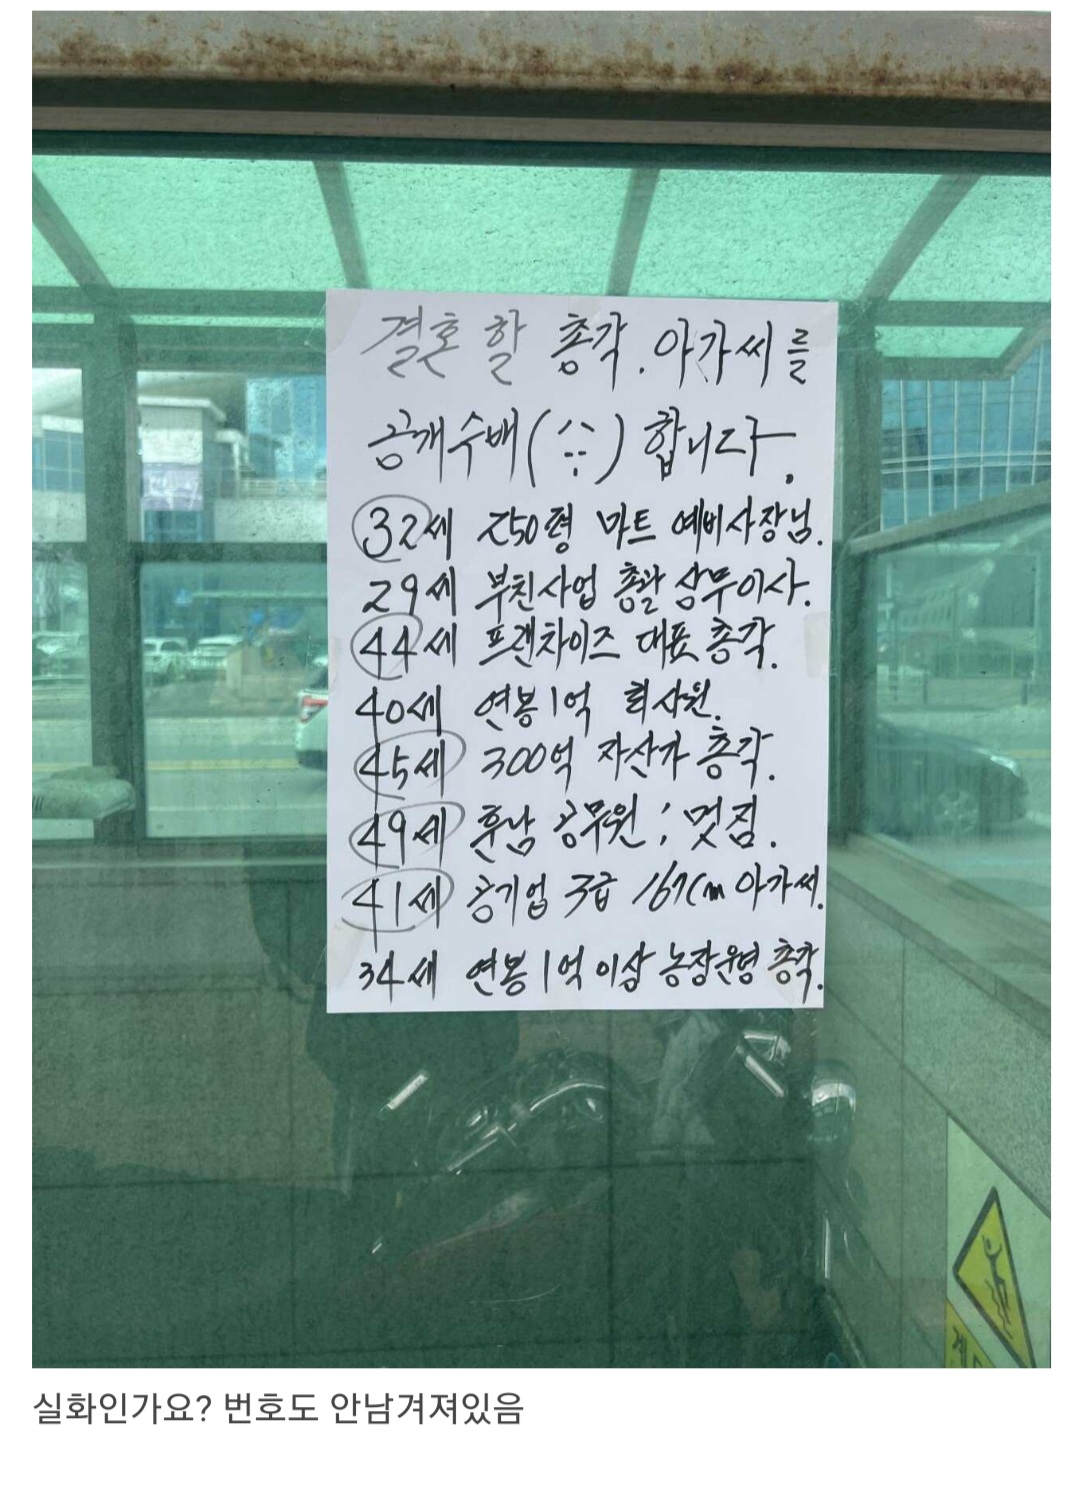 결혼 할 총각. 아가씨를
공개수배(^^) 합니다.
32세 250평 마트 예비사장님.
29세 부친사업 총괄 상무이사.
44세 프랜차이즈 대표 총각.
40세 연봉 1억 회사원.
45세 300억 자산가 총각.
49세 훈남 공무원; 멋짐.
41세 공기업 3급 167Cm 아가씨.
34세 연봉 1억 이상 농장운영 총각.
실화인가요? 번호도 안남겨져있음